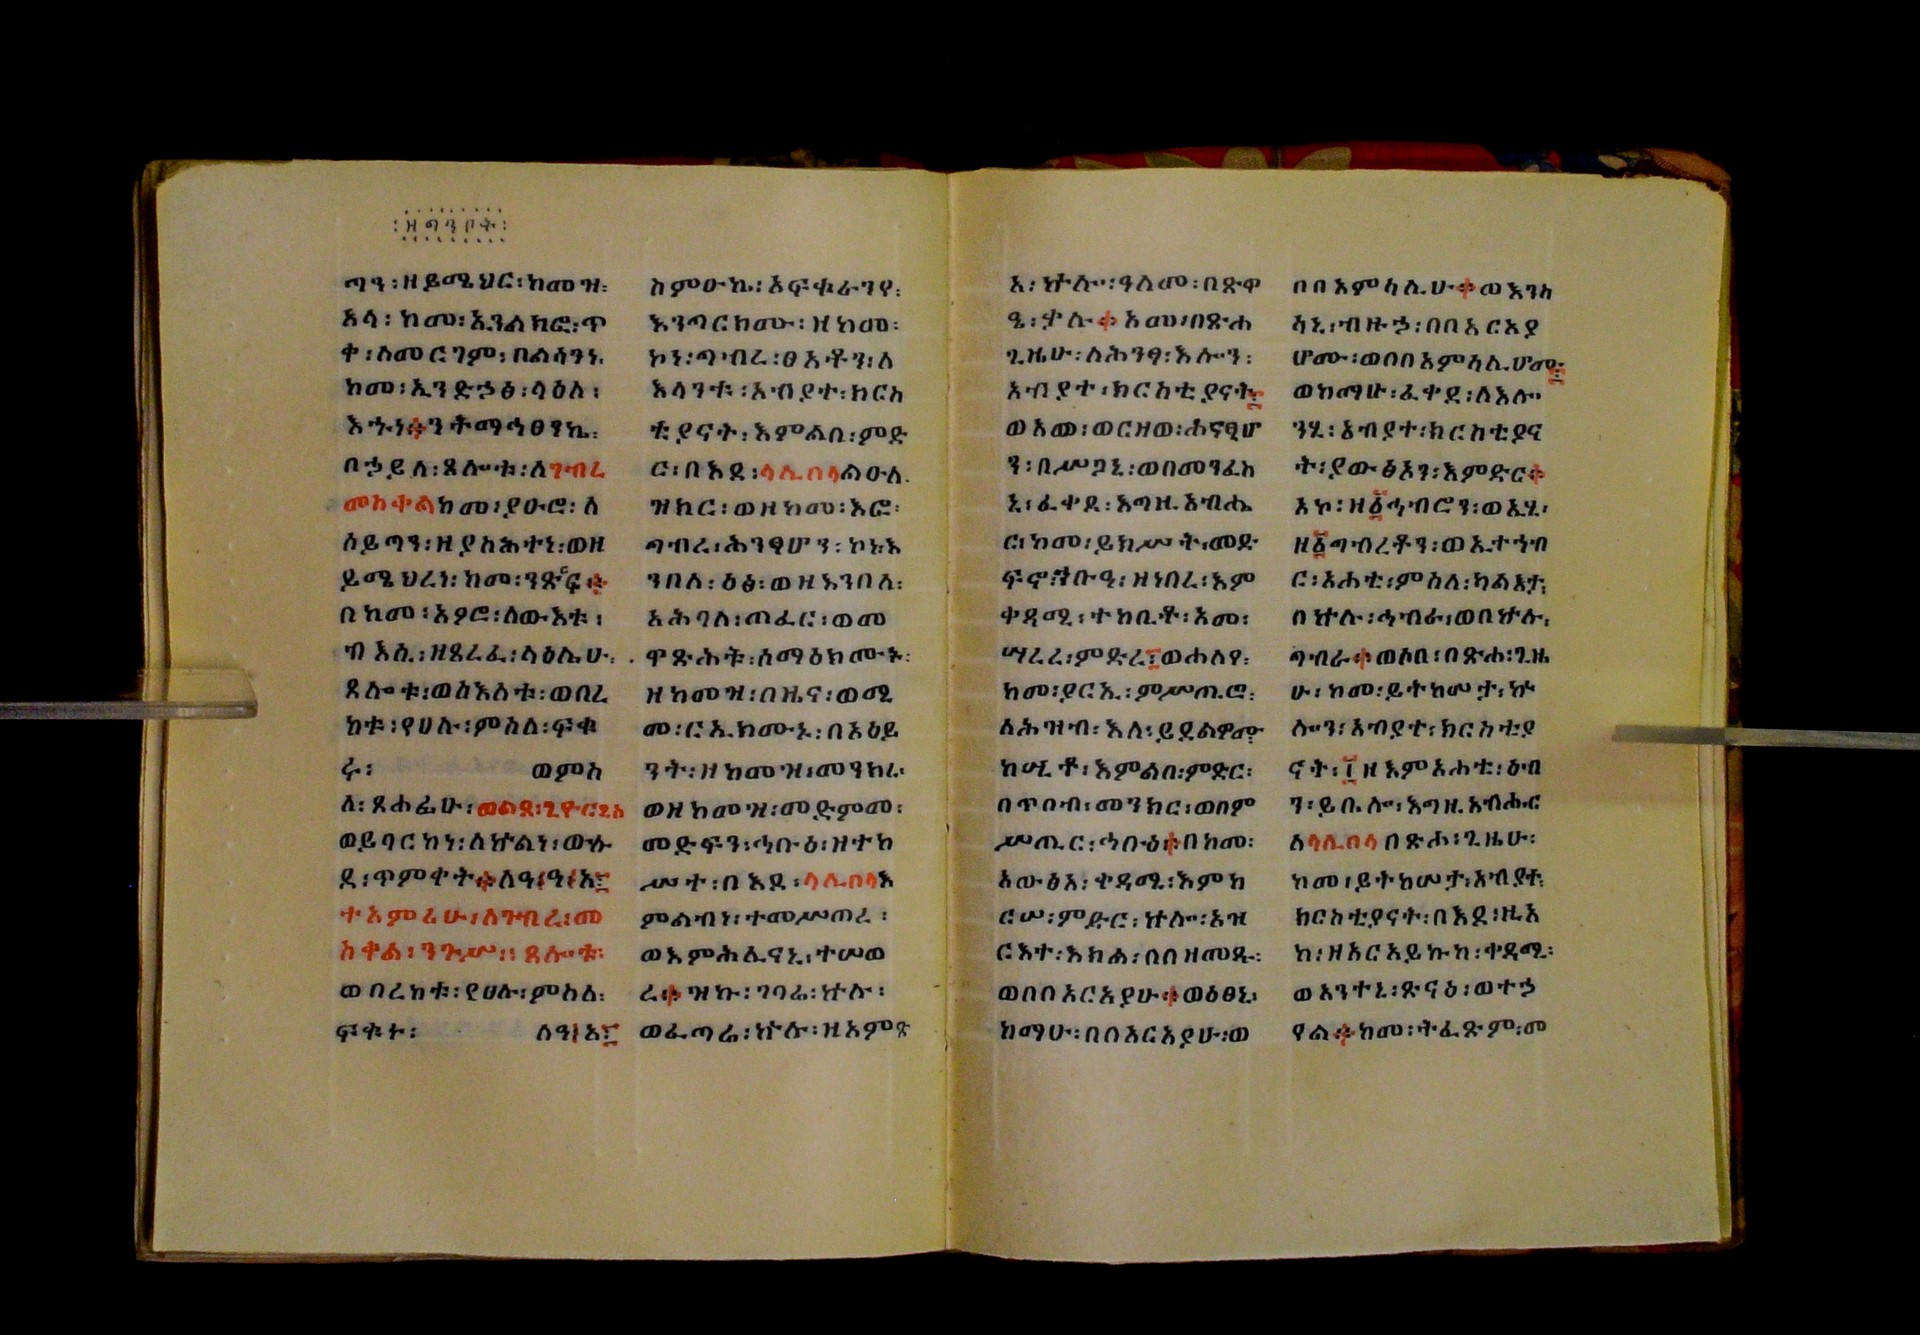 ዘግንቦት፡
ጣን፡ዘይሜህር፡ከመዝ፡
አላ፡ከመ፡ኢንልክፎ፡ጥ
ቀ፡ስመርገም፡በልሳንነ
ከመ፡ኢንድኃፅ፡ላዕለ፡
እኁነ፨ንትማኅፀንኬ፡
በኃይለ፡ጸሎቱ፡ለገብረ
መስቀልከመ፡ያዑሮ፡ለ
ሰይጣን፡ዘያስሕተነ፡ወዘ
ይሜህረነ፡ከመ፡ንጽርፍ፨
በከመ፡አዖሮ፡ለውእቱ፡
ብእሲ፡ዘጸረፈ፡ላዕሌሁ፡
ጸሎቱ፡ወስእለቱ፡ወበረ
ከቱ፡የሀሉ፡ምስለ፡ፍቁ
ሩ፡ ወምስ
ለ፡ጸሐፊሁ፡ወልደ፡ጊዮርጊስ
ወይባርከነ፡ለኵልነ፡ውሉ
ደ፡ጥምቀት፨ለዓ፤ዓ፤አ፤
ተአምሪሁ፡ለገብረ፡መ
ስቀል፡ንጉሥ፡፡ጸሎቱ፡
ወበረከቱ፡የሀሉ፡ምስለ፡
ፍቁት፡ ለዓ፤አ፤
ስምዑኬ፡አፍቁራንየ፡
እንጣርክሙ፡ዘከመ፡
ኮነ፡ጣብረ፡ፀአቶን፡ለ
እላንቱ፡አብያተ፡ክርስ
ቲያናት፡እምልበ፡ምድ
ር፡በእደ፡ላሊበላልዑለ
ዝክር፡ወዘከመ፡እፎ፡
ጣብረ፡ሕንፃሆን፡ኮነ፡እ
ንበለ፡ዕፅ፡ወዘእንበለ፡
አሕባለ፡ጠፈር፡ወመ
ዋጽሕት፡ሰማዕክሙኑ፡
ዘከመዝ፡በዜና፡ወሚ
መ፡ርኢክሙኑ፡በአዕይ
ንት፡ዘከመዝ፡መንክረ
ወዘከመዝ፡መድምመ፡
መድፍን፡ኅቡዕ፡ዝተከ
ሥተ፡በእደ፡ላሊበላእ
ምልብነ፡ተመሥጠረ፡
ወእምሕሊናኒ፡ተሠወ
ረ፨ዝኩ፡ገባሬ፡ኵሉ፡
ወፈጣሬ፡ኵሉ፡ዝእምጽ
አ፡ኵሎ፡ዓለመ፡በጽዋ
ዔ፡ቃሉ፨አመ፡በጽሐ
ጊዜሁ፡ለሕንፃ፡እሎን፡
አብያተ፡ክርስቲያናት፤
ወእወ፡ወርዘወ፡ሕናፂሆ
ን፡በሥጋኒ፡ወበመንፈስ
ኒ፡ፈቀደ፡እግዚአብሔ
ር፡ከመ፡ይክሥት፡መድ
ፍኖ፡ኅቡዓ፡ዘነበረ፡እም
ቀዳሚ፡ተከቢቶ፡አመ፡
ሣረረ፡ምድረ፤ወሐለየ፡
ከመ፡ያርኢ፡ምሥጢሮ፡
ለሕዝብ፡እለ፡ይደልዋሙ
ከሢቶ፡እምልበ፡ምድር፡
በጥበብ፡መንክር፡ወበም
ሥጢር፡ኅቡዕ፨በከመ፡
አውፅአ፡ቀዳሚ፡እምከ
ርሠ፡ምድር፡ኵሎ፡አዝ
ርእተ፡እክል፡በበዘመዱ፡
ወበበአርአያሁ፨ወዕፀኒ፡
ከማሁ፡በበአርአያሁ፡ወ
በበአምሳሊሁ፨ወእንስ
ሳኒ፡ብዙኃ፡በበአርአያ
ሆሙ፡ወበበአምሳሊሆሙ፤
ወከማሁ፡ፈቀደ፡ለእሎ
ንሂ፡አብያተ፡ክርስቲያና
ት፡ያውፅእን፡እምድር፨
አኮ፡ዘ፩ኅብሮን፡ወኢሂ፡
ዘ፩ጣብረቶን፡ወኢተኅብ
ር፡አሐቲ፡ምስለ፡ካልእታ፡
በኵሉ፡ኅብራ፡ወበኵሉ፡
ጣብራ፨ወሶበ፡በጽሐ፡ጊዜ
ሁ፡ከመ፡ይትከሠታ፡ኵ
ሎን፡አብያተ፡ክርስቲያ
ናት፡፲ዘእምአሐቲ፡ዕብ
ን፡ይቤሎ፡እግዚአብሔር
ለላሊበላበጽሐ፡ጊዜሁ፡
ከመ፡ይትከሠታ፡አብያተ
ክርስቲያናት፡በእደ፡ዚአ
ከ፡ዘአርአይኩከ፡ቀዳሚ፡
ወአንተኒ፡ጽናዕ፡ወተኃ
የል፨ከመ፡ትፈጽም፡መ